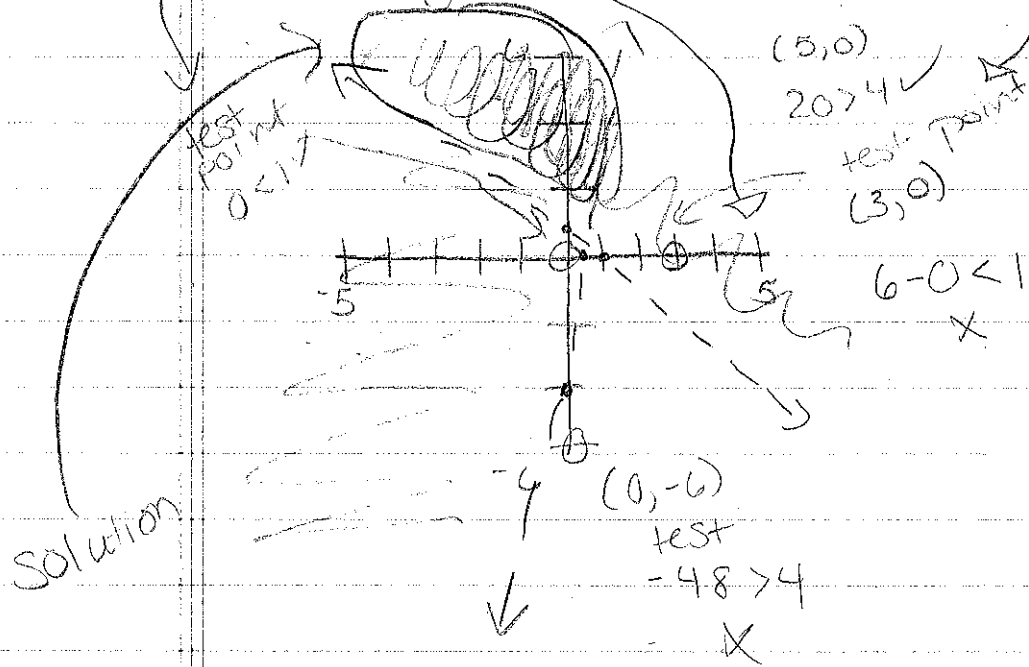 (5,0)
20>4 ✓
test point
(3,0)
6-0<1
X
test
point
0<1 ✓
4
-5
5
-4
(0,-6)
test
-48>4
X
Solution